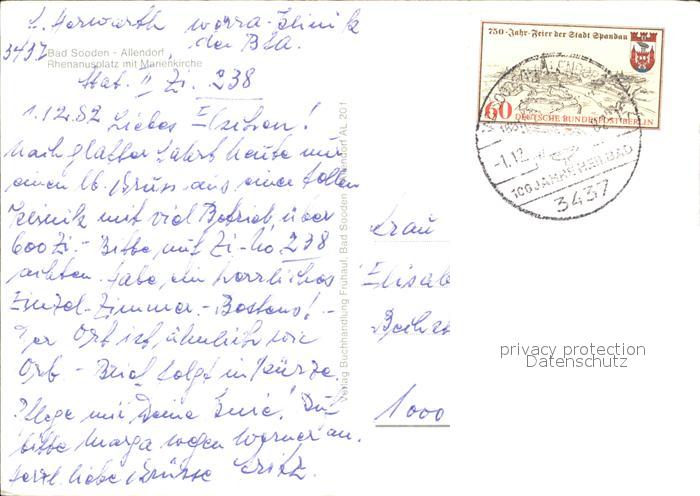 Werra-Klinik
der BfA.
3437 Bad Sooden - Allendorf
Rhenanusplatz mit Marienkirche
Stat. II Zi. 238
1.12.82 Liebes Elschen!
Nach glatter Fahrt heute nur
einen lb. Gruss aus einer tollen
Klinik mit viel Betrieb über
600 Zi. - Bitte, auf Zi-No 238
achten. Habe ein herrliches
Einzel-Zimmer. - Bestens! -
Der Ort ist ähnlich wie
Orb - Brief folgt in Kürze.
Pflege mir Deine Ruf
bitte Marga wegen Werner an.
Herzl. liebe Grüsse
Verlag Buchhandlung Frühauf, Bad Sooden - Allendorf AL 201
750-Jahr-Feier der Stadt Spandau
60 DEUTSCHE BUNDESPOST BERLIN
-1.12.
100 JAHRE HEILBAD
3437
Frau
Elisab
1000
privacy protection
Datenschutz